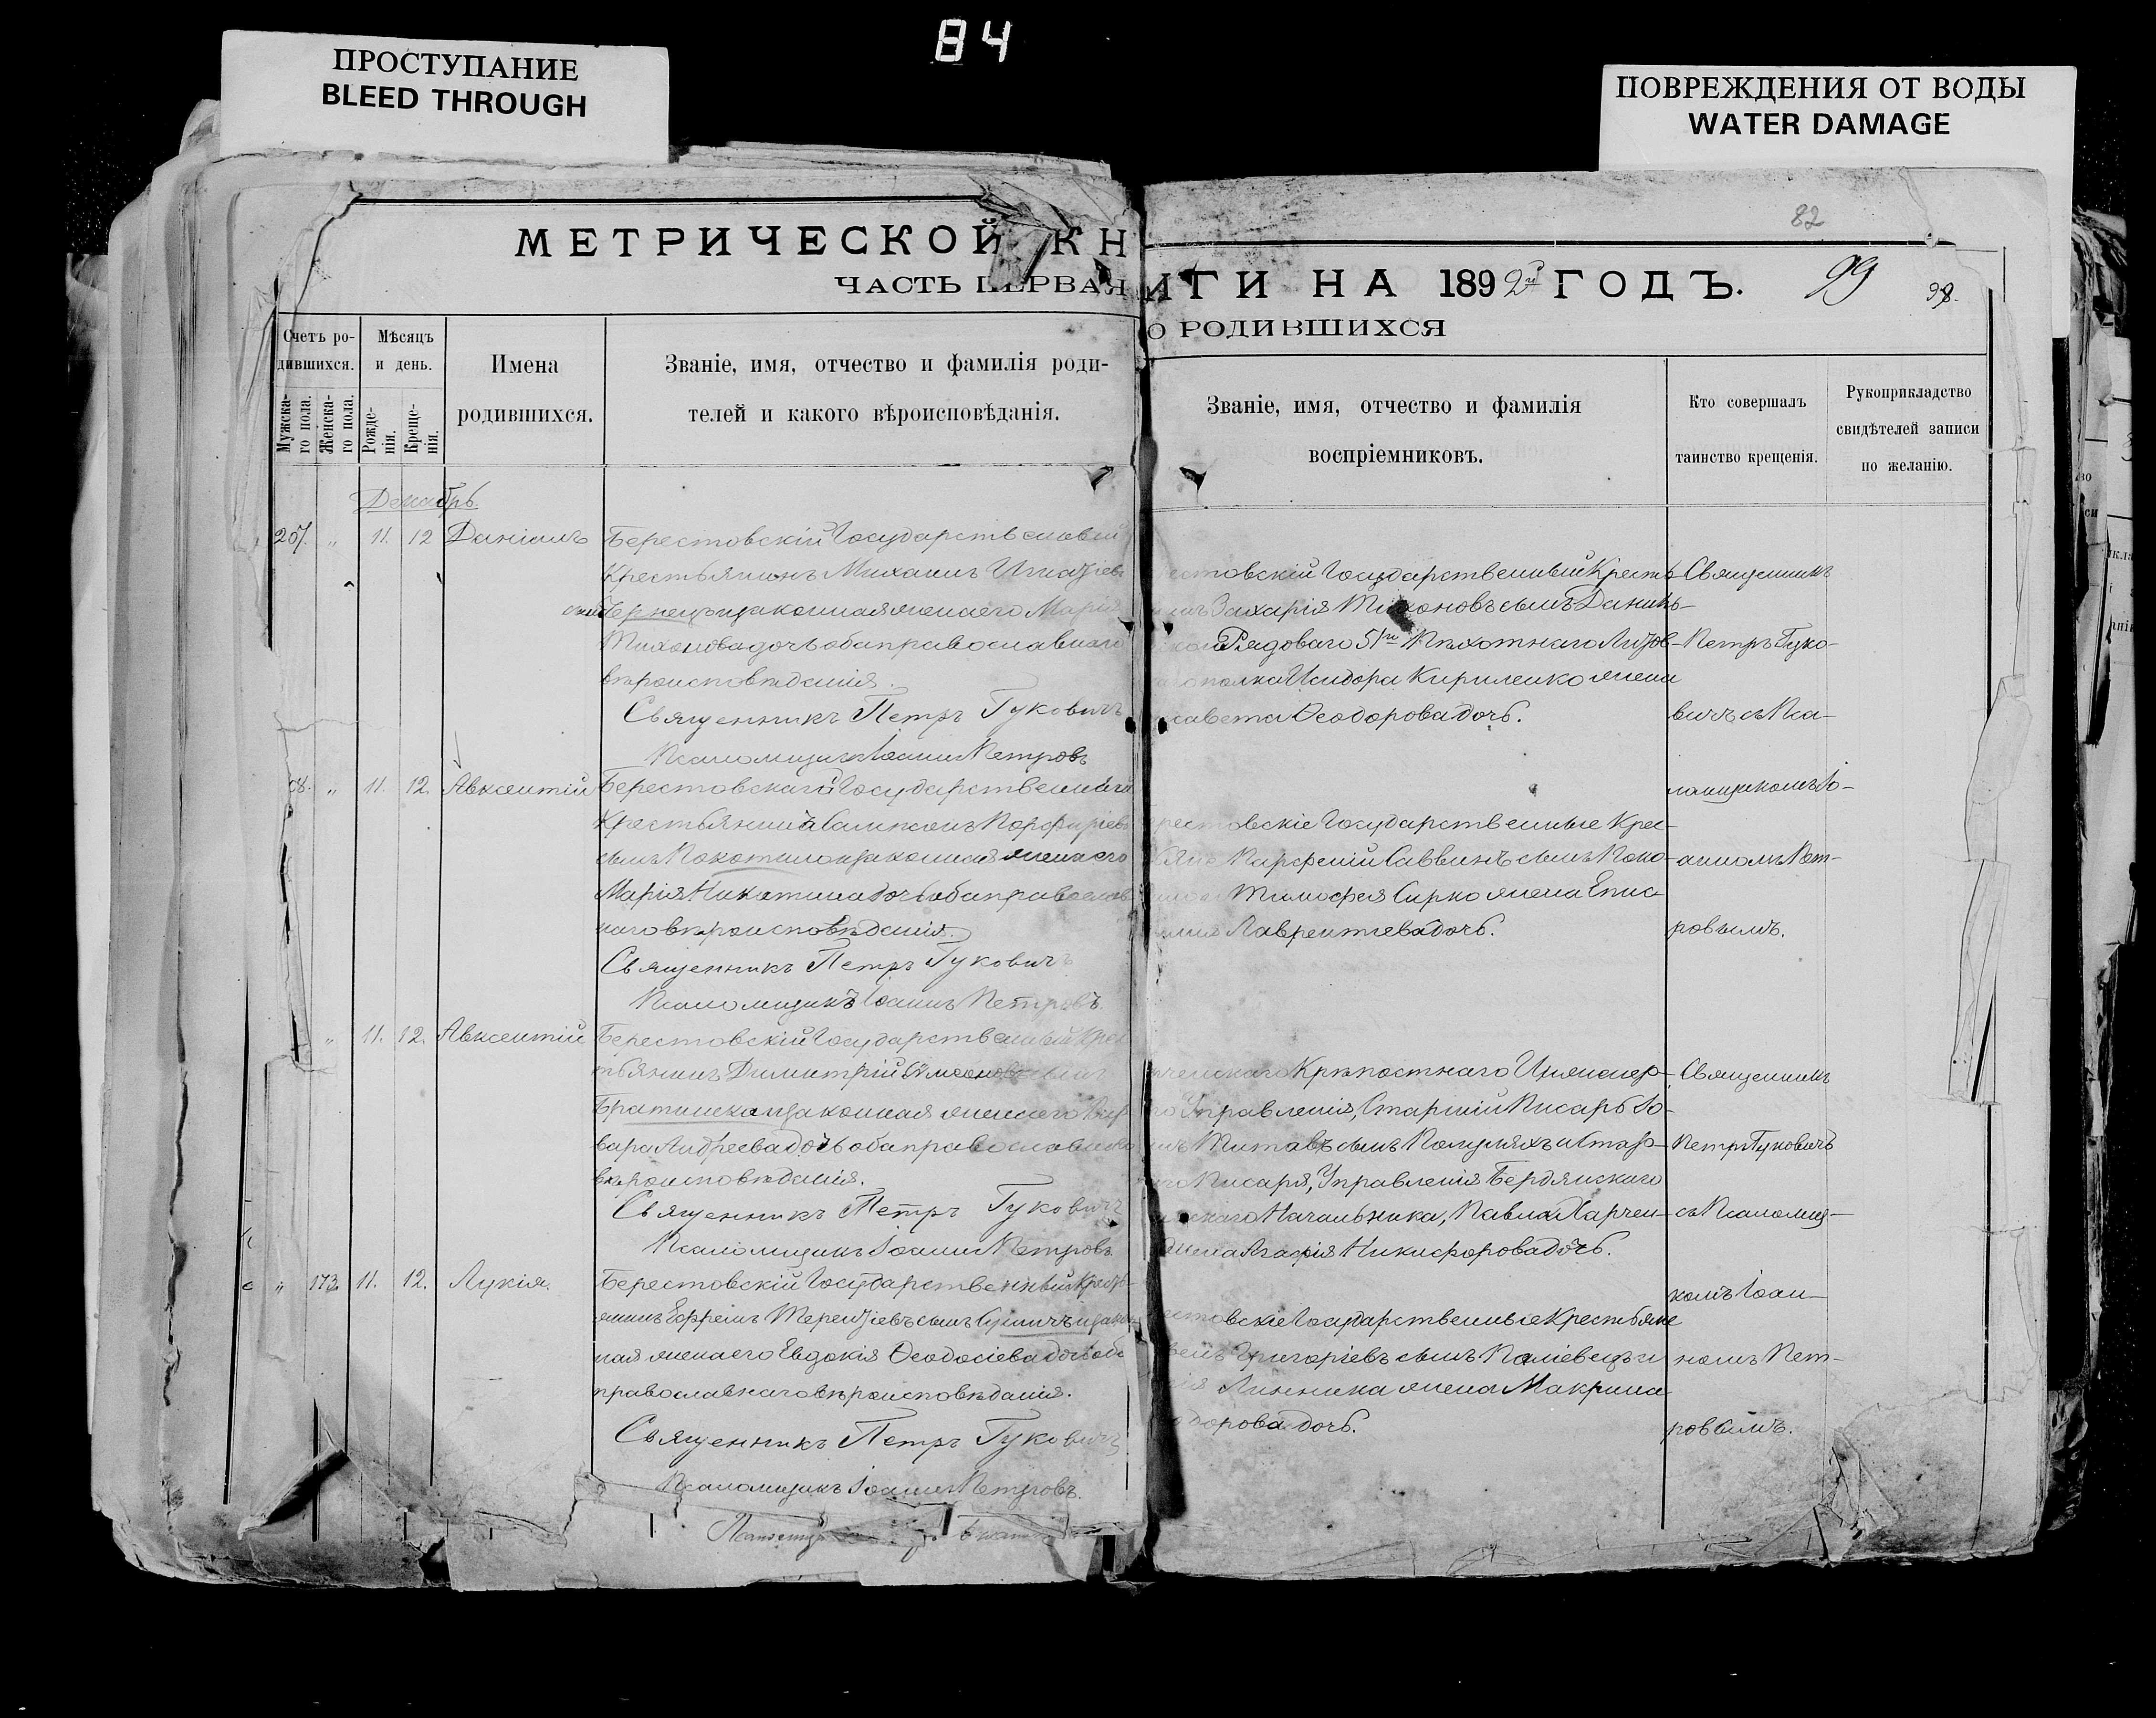 84
ПРОСТУПАНИЕ
BLEED THROUGH
ПОВРЕЖДЕНИЯ ОТ ВОДЫ
WATER DAMAGE
82
МЕТРИЧЕСКОЙ КН
ЧАСТЬ ПЕРВАЯ
ИГИ НА 1892й ГОДЪ.
99
98.
О РОДИВШИХСЯ
Счетъ ро-
дившихся.
Мѣсяцъ
и день.
Мужска-
го пола.
Женска-
го пола.
Рожде-
нія.
Креще-
нія.
Имена
родившихся.
Званіе, имя, отчество и фамилія роди-
телей и какого вѣроисповѣданія.
Званіе, имя, отчество и фамилія
воспріемниковъ.
Кто совершалъ
таинство крещенія.
Рукоприкладство
свидѣтелей записи
по желанію.
Декабрь.
207. " 11. 12 Даніилъ
Берестовскій Государственный
Крестьянинъ Михаилъ Игнатіевъ
сынъ и законная жена его Марія
Тихонова дочь оба православнаго
вѣроисповѣданія.
Священникъ Петръ Гуковичъ
Псаломщикъ Іоаннъ Петровъ
естовскій Государственный Кресть-
Захарія Тихоновъ сынъ Данил-
Рядоваго 51го Пѣхотнаго Литов-
полка Исидора Кириленко жена
савета Ѳеодорова дочь.
Священникъ
Петръ Гуко-
вичъ съ Пса-
ломщикомъ Іо-
анномъ Пет-
ровымъ.
08. " 11. 12. Авксентій
Берестовскаго Государственнаго
Крестьянина Порфиріевъ
сынъ Покотило и законная жена его
Марія Никитина дочь оба православ
наго вѣроисповѣданія.
Священникъ Петръ Гуковичъ
Псаломщикъ Іоаннъ Петровъ.
рестовскіе Государственные Крес-
Парфеній Саввинъ сынъ Поко-
Тимофея Сирко жена Епис-
Лаврентіева дочь.
" 11. 12. Авксентій
Берестовскій Государственный Крес
тьянинъ Димитрій Симеоновъ сынъ
Братишко и законная жена его Вар
вара Андреева дочь оба православнаго
вѣроисповѣданія.
Священникъ Петръ Гуковичъ
Псаломщикъ Іоаннъ Петровъ.
Крѣпостнаго Инженер-
Управленія, Старшій Писарь Іо-
Титовъ сынъ и Стар-
Писаря, Управленія Бердянскаго
Начальника, Павла Харчен-
жена Агафія Никифорова дочь.
Священникъ
Петръ Гуковичъ
съ Псаломщи-
комъ Іоан-
номъ Пет-
ровымъ.
" 173 11. 12. Лукія.
Берестовскій Государственный Кресть-
янинъ Ефремъ Терентіевъ сынъ и закон
ная жена его Евдокія Ѳеодосіева дочь оба
православнаго вѣроисповѣданія.
Священникъ Петръ Гуковичъ
Псаломщикъ Іоаннъ Петровъ.
естовскіе Государственные Крестьяне
Григоріевъ сынъ Паліевецъ и
Линника жена Макрина
дорова дочь.